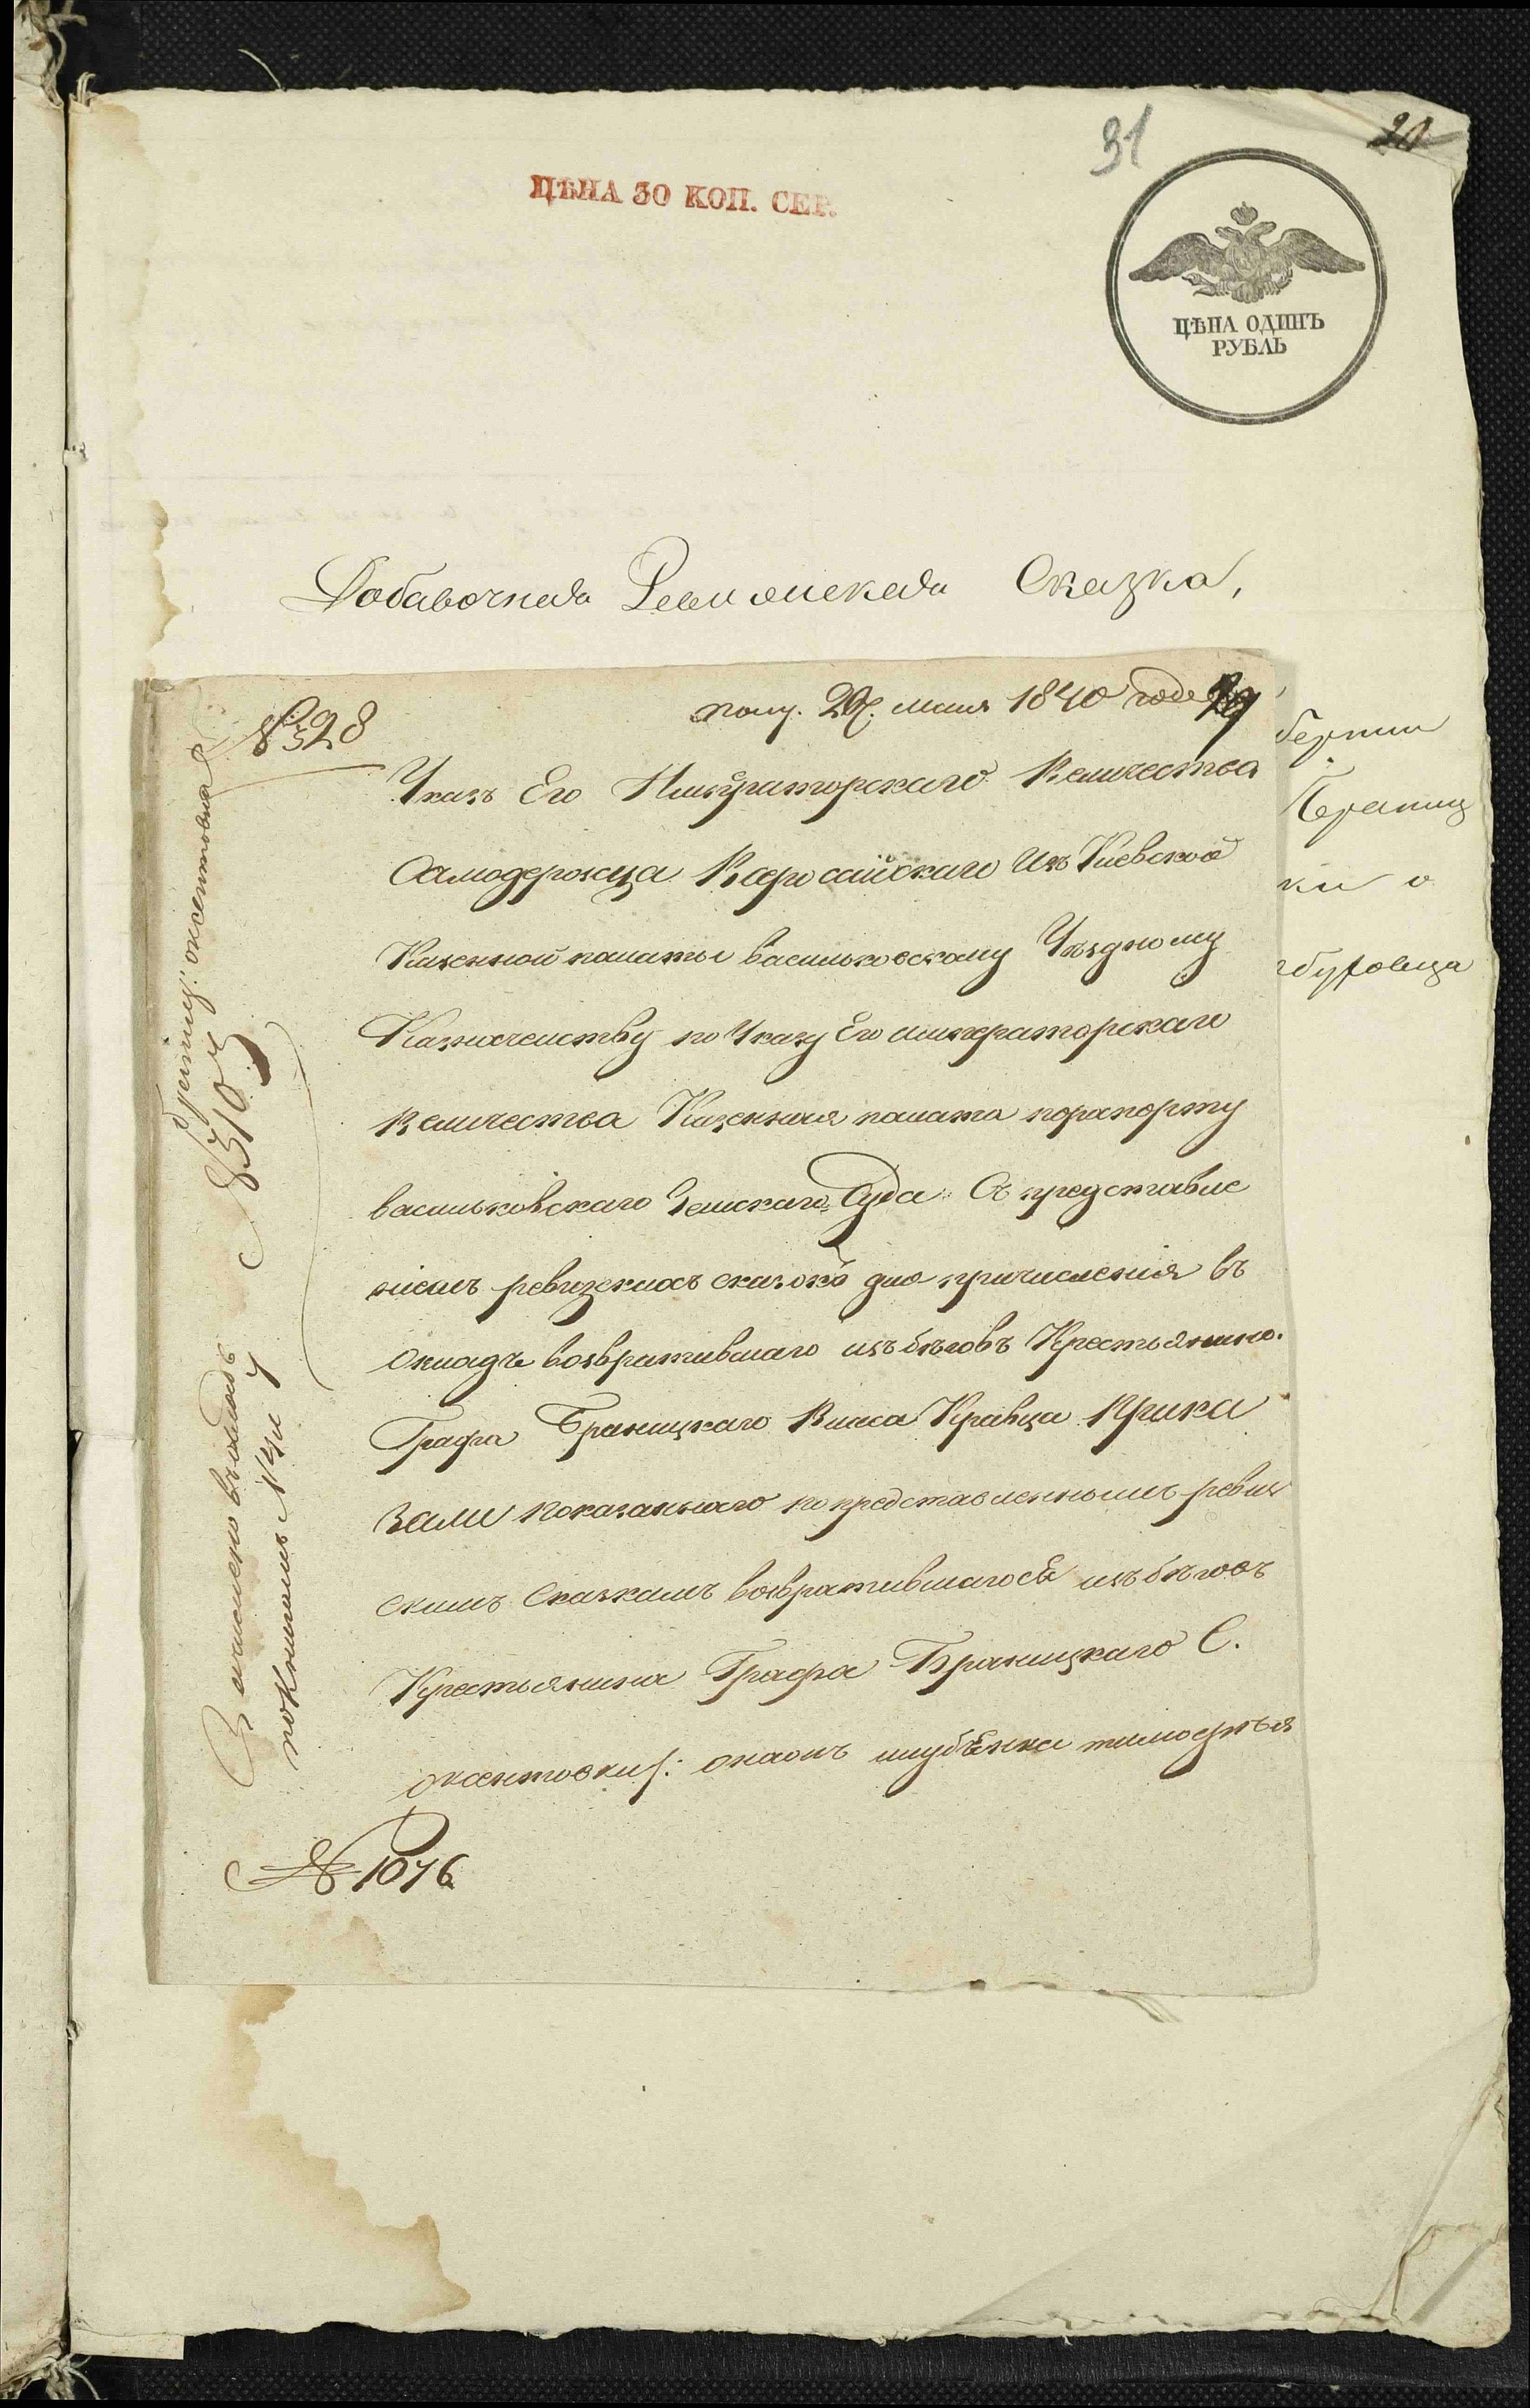 31
20
ЦѢНА 30 КОП. СЕР.
ЦѢНА ОДИНЪ
РУБЛЬ
Добавочная Ревизская Сказка,
№ 328
полу. 29. мая 1840 года
Указъ Его Императорскаго Величества
Самодержца Всероссійскаго Изъ Кіевской
Казенной палаты васильковскому Уѣздному
Казначеиству по Указу Его императорскаго
Величества Казенная палата порапорту
васильковскаго Земскаго Суда Съ представле
ніемъ ревизскихъ сказокъ для причисленія въ
окладъ возвратившаго изъ бѣговъ Крестьянино.
Графа Браницкаго Кравца Прика
зали показаннаго по представленнымъ ревиз
скимъ Сказкамъ возвратившагося изъ бѣговъ
Крестьянина Графа Браницкаго С.
тимофѣя
№ 1076
берніи
Браниц
ки о
Зачислено въ окладъ
по книгамъ
№ 510